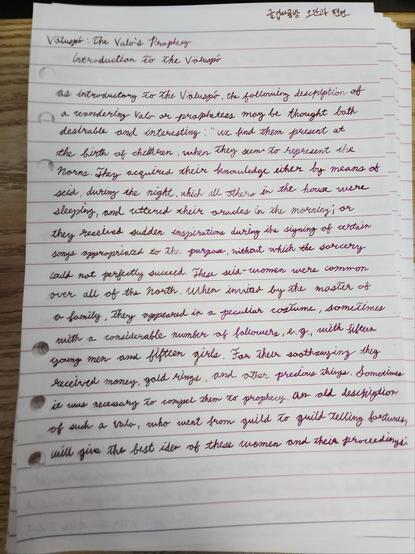 오만과 편견
Völuspó: the Valo's Prophecy
Introduction to the Völuspó
as introductory to the Völuspó, the following description of
a wandering Valo or prophetess may be thought both
desirable and interesting: "We find them present at
the birth of children, when they seem to represent the
Norns. They acquired their knowledge either by means of
seid, during the night, which all others in the house were
sleeping, and uttered their oracles in the morning; or
they received sudden inspirations during the signing of certain
songs appropriated to the purpose, without which the sorcery
could not perfectly succeed. These seid-women were common
over all of the North. When invited by the master of
a family, they appeared in a peculiar costume, sometimes
with a considerable number of followers, e.g., with fifteen
young men and fifteen girls. For their soothsaying they
received money, gold rings, and other precious things. Sometimes
it was necessary to compel them to prophecy. An old description
of such a Valo, who went from guild to guild telling fortunes,
will give the best idea of these women and their proceedings: